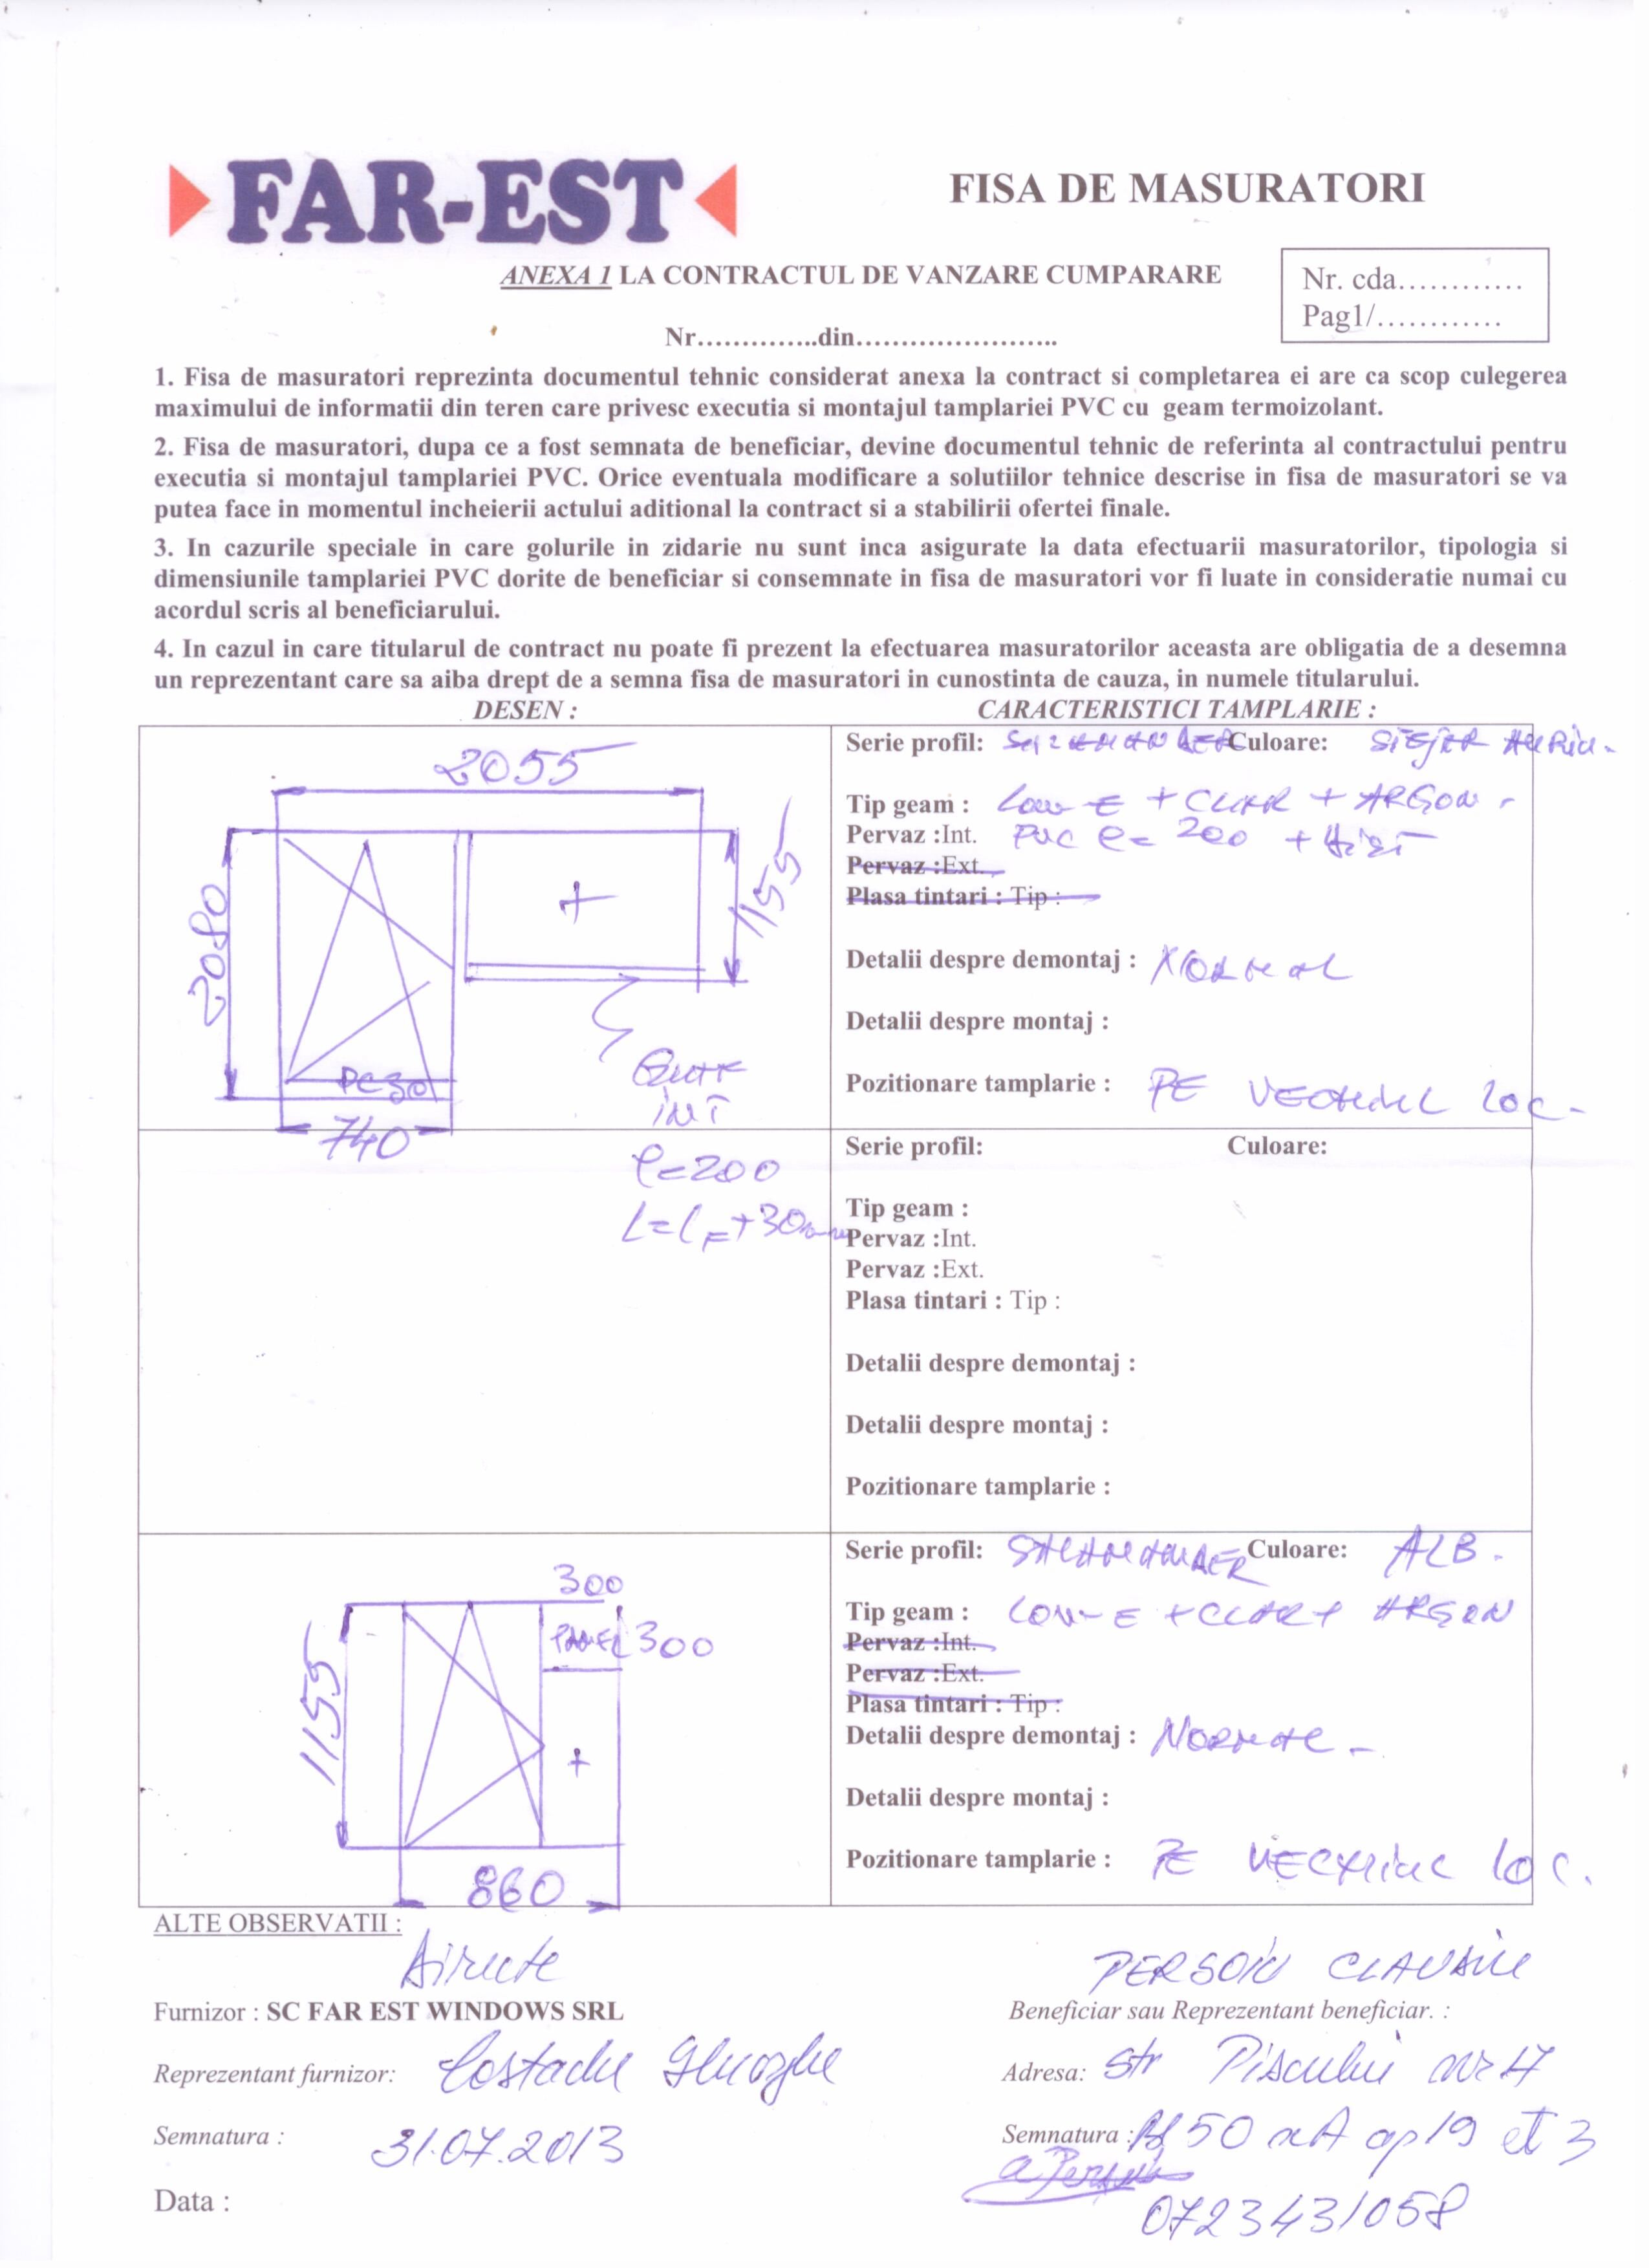 FAR-EST
FISA DE MASURATORI
ANEXA 1 LA CONTRACTUL DE VANZARE CUMPARARE
Nr. cda............
Pag1/............
Nr..............din......................
1. Fisa de masuratori reprezinta documentul tehnic considerat anexa la contract si completarea ei are ca scop culegerea
maximului de informatii din teren care privesc executia si montajul tamplariei PVC cu geam termoizolant.
2. Fisa de masuratori, dupa ce a fost semnata de beneficiar, devine documentul tehnic de referinta al contractului pentru
executia si montajul tamplariei PVC. Orice eventuala modificare a solutiilor tehnice descrise in fisa de masuratori se va
putea face in momentul incheierii actului aditional la contract si a stabilirii ofertei finale.
3. In cazurile speciale in care golurile in zidarie nu sunt inca asigurate la data efectuarii masuratorilor, tipologia si
dimensiunile tamplariei PVC dorite de beneficiar si consemnate in fisa de masuratori vor fi luate in consideratie numai cu
acordul scris al beneficiarului.
4. In cazul in care titularul de contract nu poate fi prezent la efectuarea masuratorilor aceasta are obligatia de a desemna
un reprezentant care sa aiba drept de a semna fisa de masuratori in cunostinta de cauza, in numele titularului.
DESEN :
CARACTERISTICI TAMPLARIE :
2055
1155
2080
+
PC30
740
GLAF
INT
l=200
L=lF+30mm
Serie profil: SALAMANDER Culoare: STEJAR AURIU.
Tip geam : Low-E + CLAR + ARGON
Pervaz :Int. PVC l= 200
Pervaz :Ext.
Plasa tintari : Tip :
Detalii despre demontaj : NORMAL
Detalii despre montaj :
Pozitionare tamplarie : PE VECHIUL LOC.
Serie profil: Culoare:
Tip geam :
Pervaz :Int.
Pervaz :Ext.
Plasa tintari : Tip :
Detalii despre demontaj :
Detalii despre montaj :
Pozitionare tamplarie :
300
PANEL 300
1155
+
860
Serie profil: SALAMANDER Culoare: ALB.
Tip geam : LOW-E + CLAR + ARGON
Pervaz :Int.
Pervaz :Ext.
Plasa tintari : Tip :
Detalii despre demontaj : NORMAL
Detalii despre montaj :
Pozitionare tamplarie : PE VECHIUL LOC.
ALTE OBSERVATII :
PERSOIU CLAUDIU
Furnizor : SC FAR EST WINDOWS SRL
Beneficiar sau Reprezentant beneficiar. :
Reprezentant furnizor: Costache Gheorghe
Adresa: Str Piscului nr 17
Semnatura :
31.07.2013
Semnatura : Bl 50 sc A ap 19 et 3
Data :
0723431058